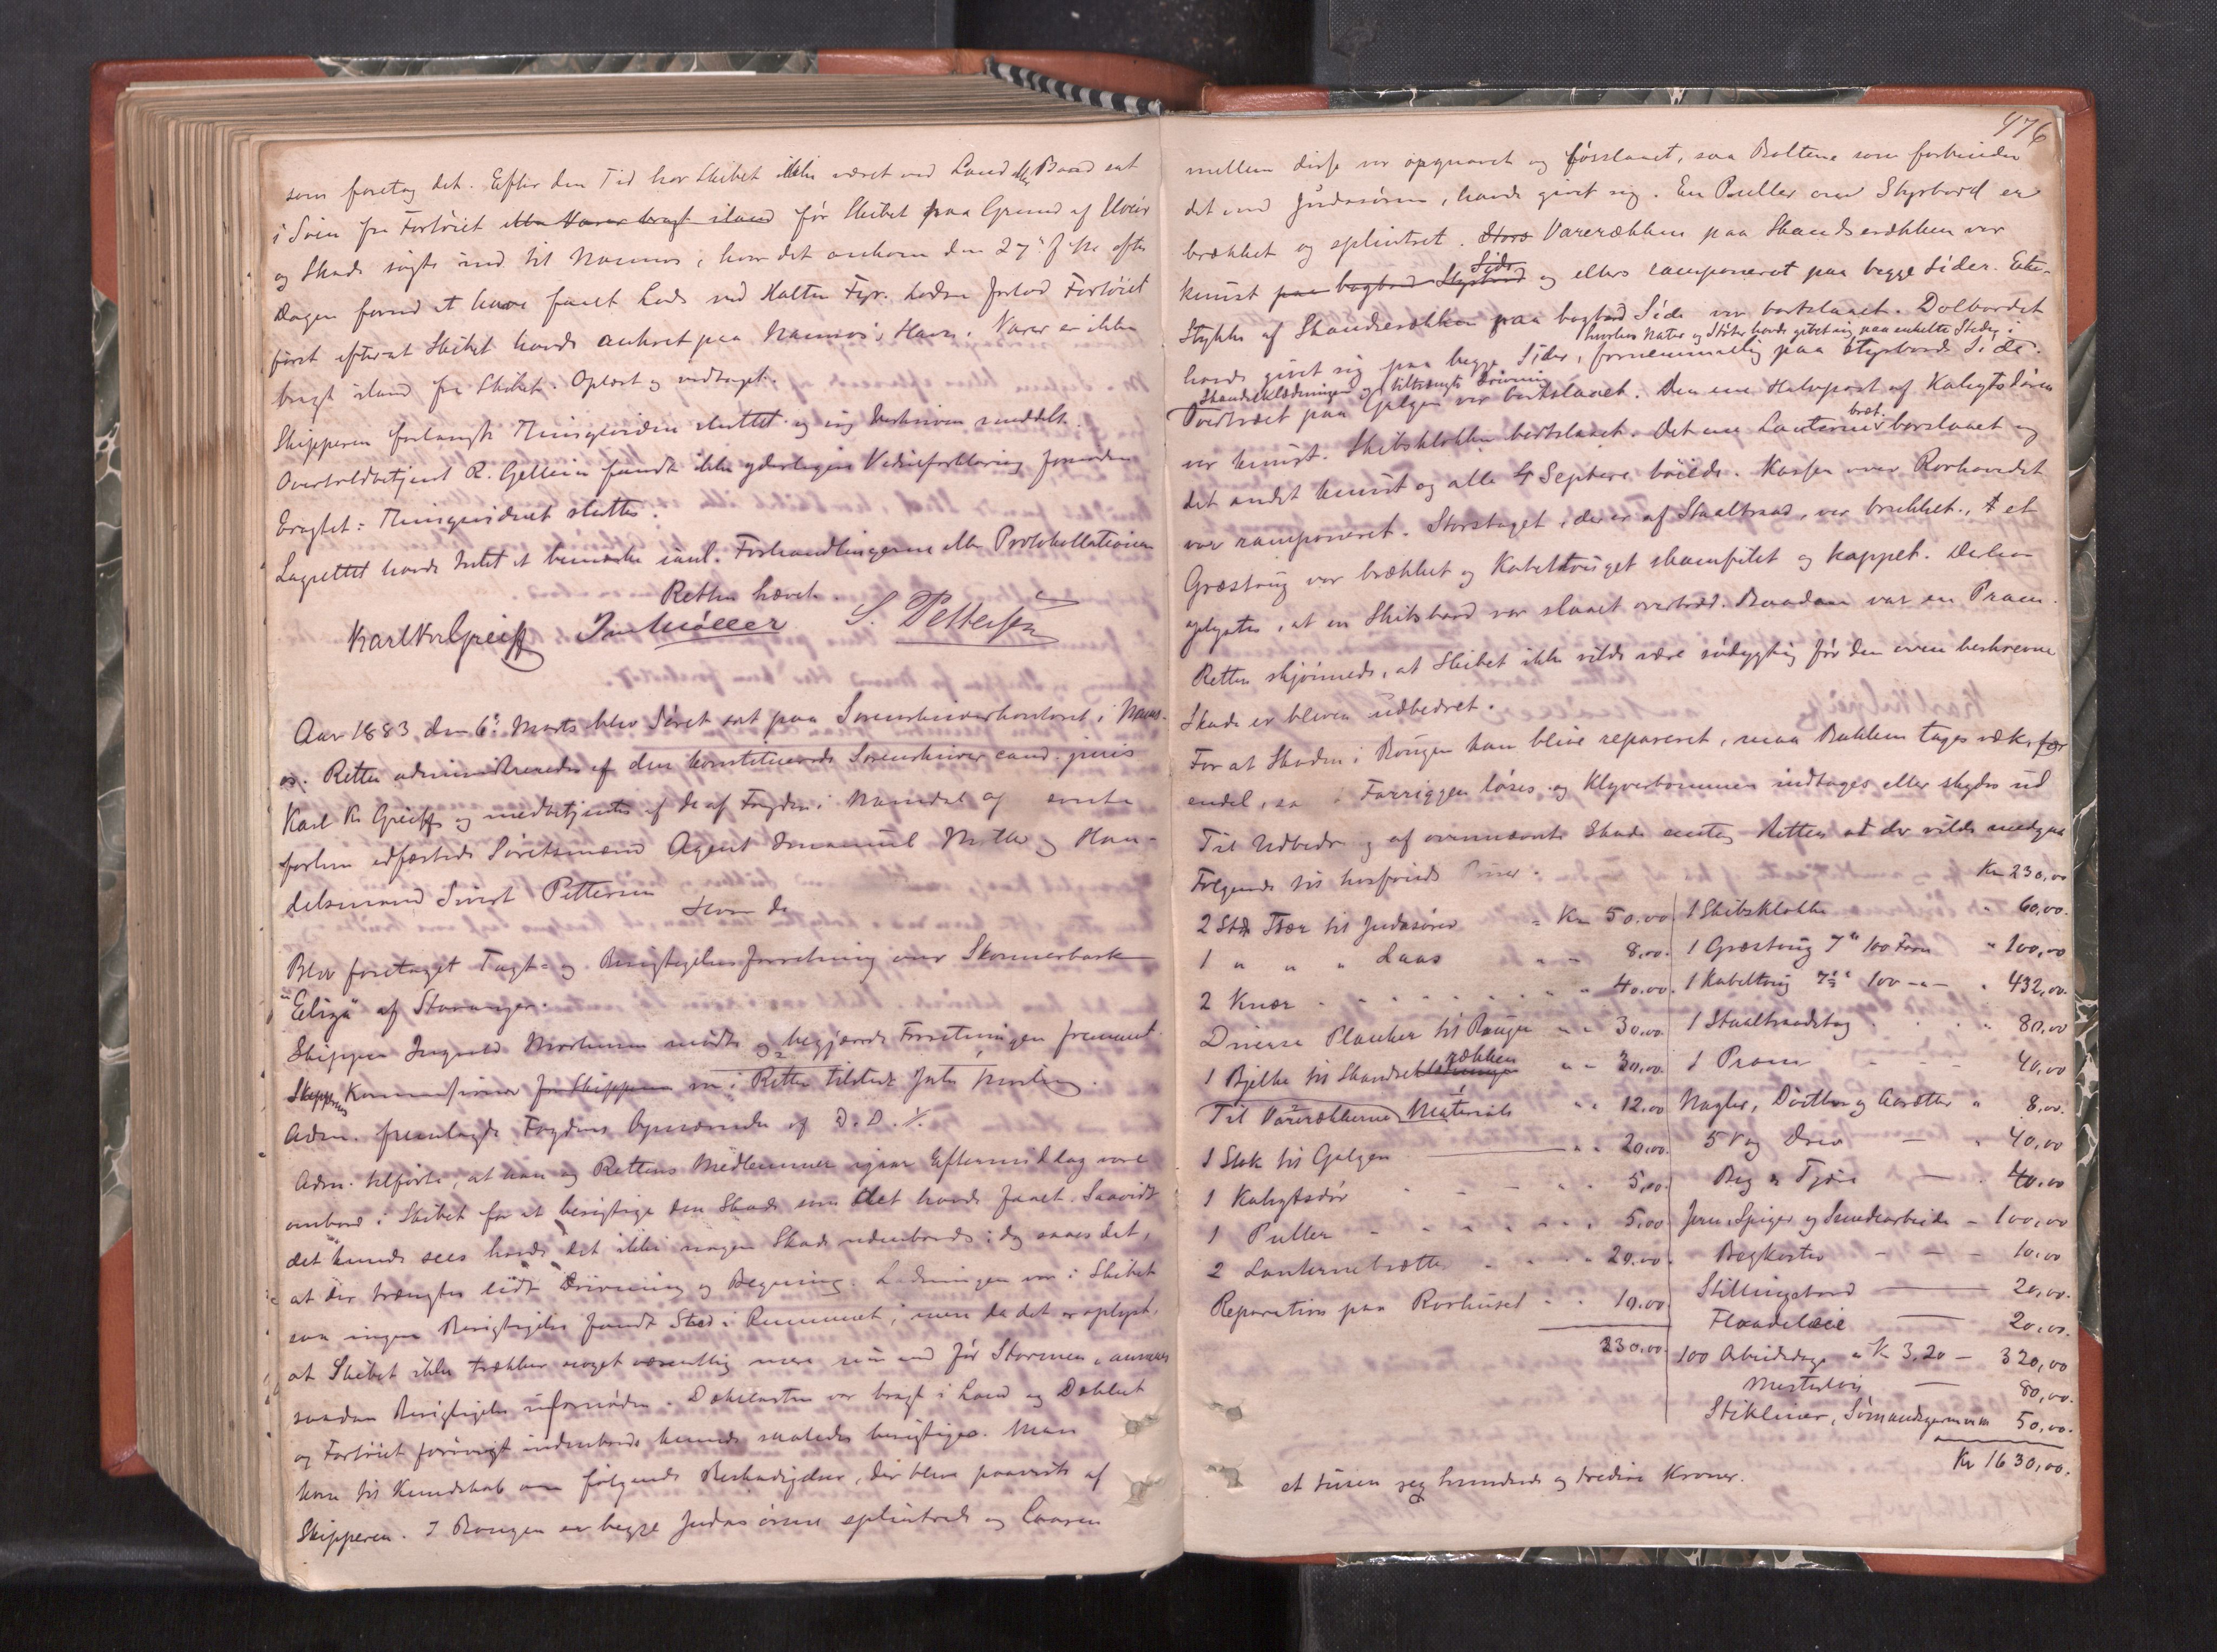 som foretog det. Efter den Tid har Skibet ikke været ved Land eller Baad sat
i Søen fra Fartøiet eller Varer bragt iland før Skibet paa Grund af Uveir
og Skade søgte ind til Namsos, hvor det ankom den 27de f. efter
Dagen forud at have faaet Lods ved Halten Fyr. Lodsen forlod Fartøiet
først efterat Skibet havde ankret paa Namsos Havn. Varer er ikke
bragt iland fra Skibet. Oplæst og vedtaget.
Skipperen forlangte Thingsvidnet sluttet og sig Beskrivelse meddelt.
Overtoldbetjent R. Gellein fandt ikke yderligere Vidneforklaring fornøden
Eragtet: Thingsvidnet sluttes.
Lagrettet havde Intet at bemærke imod Forhandlingerne eller Protokollationen
Retten hævet.
Karl Kr. Greiff Im Müller S. Pettersen
Aar 1883 den 6te Marts blev Søret sat paa Sorenskriverkontoret i Nams-
os. Retten administreredes af den konstituerede Sorenskriver cand. juris
Karl K. Greiff og medbetjentes af de af Fogden i Namdal og
forhen edfæstede Søretsmænd Agent Immanuel Müller og Han-
delsmand Sivert Pettersen
Hvor da
Blev foretaget Taxt- og Besigtigelsesforretning over Skonnerbark
"Eliza" af Stavanger.
Skipper Ingvald mødte og begjærede Forretningen fremmet.
Skipperens Kommissionær for Skipperen var i Retten tilstede
Adm. fremlagde Fogdens Opnævnelse af D. D. 1/.
Adm. tilførte, at han og Rettens Medlemmer igaar Eftermiddag vare
ombord i Skibet for at besigtige den Skade som det havde faaet. Saavidt
det kunde sees havde det ikke nogen Skade udenbords; dog saaes det,
at der trængtes lidt Drivning og Begning. Ladningen var i Skibet
saa ingen Besigtigelse fandt Sted i Rummet, men da det er oplyst,
at Skibet ikke trækker noget væsentlig mere nu end før Stormen, ansaaes
saadan Besigtigelse ufornøden. Dækslasten var bragt i Land og Dækket
og Fartøiet forøvrigt indenbords kunde saaledes besigtiges. Man
kom til Kundskab om følgende Beskadigelser, der bleve paaviste af
Skipperen. I Bougen er begge Judasørene splintrede og Laasen
476
mellem disse var opgnavet og forslaaet, saa Boltene som forbinder
det med Judasørene, havde givet sig. En Puller om Styrbord er
brækket og splintret. Store Varerækken paa Skandserækken var
knust paa bagbord Styrbord Side og ellers ramponeret paa begge Sider. Et
Stykke af Skandserækken paa bagbord Side var bortslaaet. Dolbordet
havde givet sig paa begge Sider, fornemmelig paa Styrbords Side.
hvorhos Nater og Støter havde givet sig paa enkelte Steder i
Skandseklædningen og tiltrængte Drivning
Overtræet paa Galgen var bortslaaet. Den ene Halvpart af Kahytsdøren
var knust. Skibsklokken bortslaaet. Det ene Lanternebræt borslaaet og
det andet knust og alle 4 Septere bøiede. Kassen over Rorhovedet
var ramponeret. Storstaget, der er af Staaltraad, var brukket, et
Græstoug var brækket og Kabeltouget skamfilet og kappet. Derhos
oplystes, at en Skibsbaad var slaaet overbord. Baaden var en Pram.
Retten skjønnede, at Skibet ikke vilde være sødygtig før den oven beskrevne
Skade er bleven udbedret.
For at Skaden i Bougen kan blive repareret, maa Bakken tages væk for
endel, samt Forriggen løses og Klyverbommen indtages eller skydes ud
Til Udbedring af ovennævnte Skade antog Retten at der vilde medgaa
Følgende til hosføiede Priser.
Kr. 230,00
2 Stkr Træer til Judasører " Kr 50.00. 1 Skibsklokke " 60,00.
1 " " " Laas " " 8,00. 1 Græstoug 7" 100 Favn " 100,00
2 Knær " 40.00. 1 Kabeltoug 7½" 100 -"- " 432,00.
Diverse Planker til Bougen " " 30,00. 1 Staaltraadstag " 80,00
1 Bjelke til Skandseklædningen rækken " " 20,00. 1 Pram 40,00
Til Varerækkerne Materiale " " 12,00 Nagler, Døitler og Aarætter " 8,00.
1 Stok til Galgen " " 20,00. 5 Vog Drev " 40,00
1 Kahytsdør " " 5,00. Beg & Tjære 40,00
1 Puller " " 5,00 Jern, Spiger og Smedearbeide - 100,00
2 Lanternebrætter " " 20,00. Begkoster 10,00
Reparation paa Rorhuset " " 10.00 Stillingsbord 20,00.
230.00. Flaadeleie 20,00.
100 Arbeidsdage a Kr 3,20 - 320,00
Mesterløn 80,00.
Stiklinier, Sømandsgarn m.m. 50,00.
Kr 1630,00.
et tusen sex hundrede og tredive Kroner.